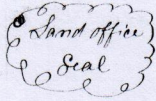 Land office
Seal